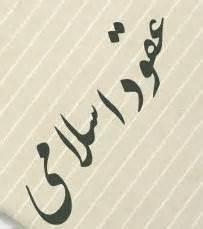 عقود اسلامی